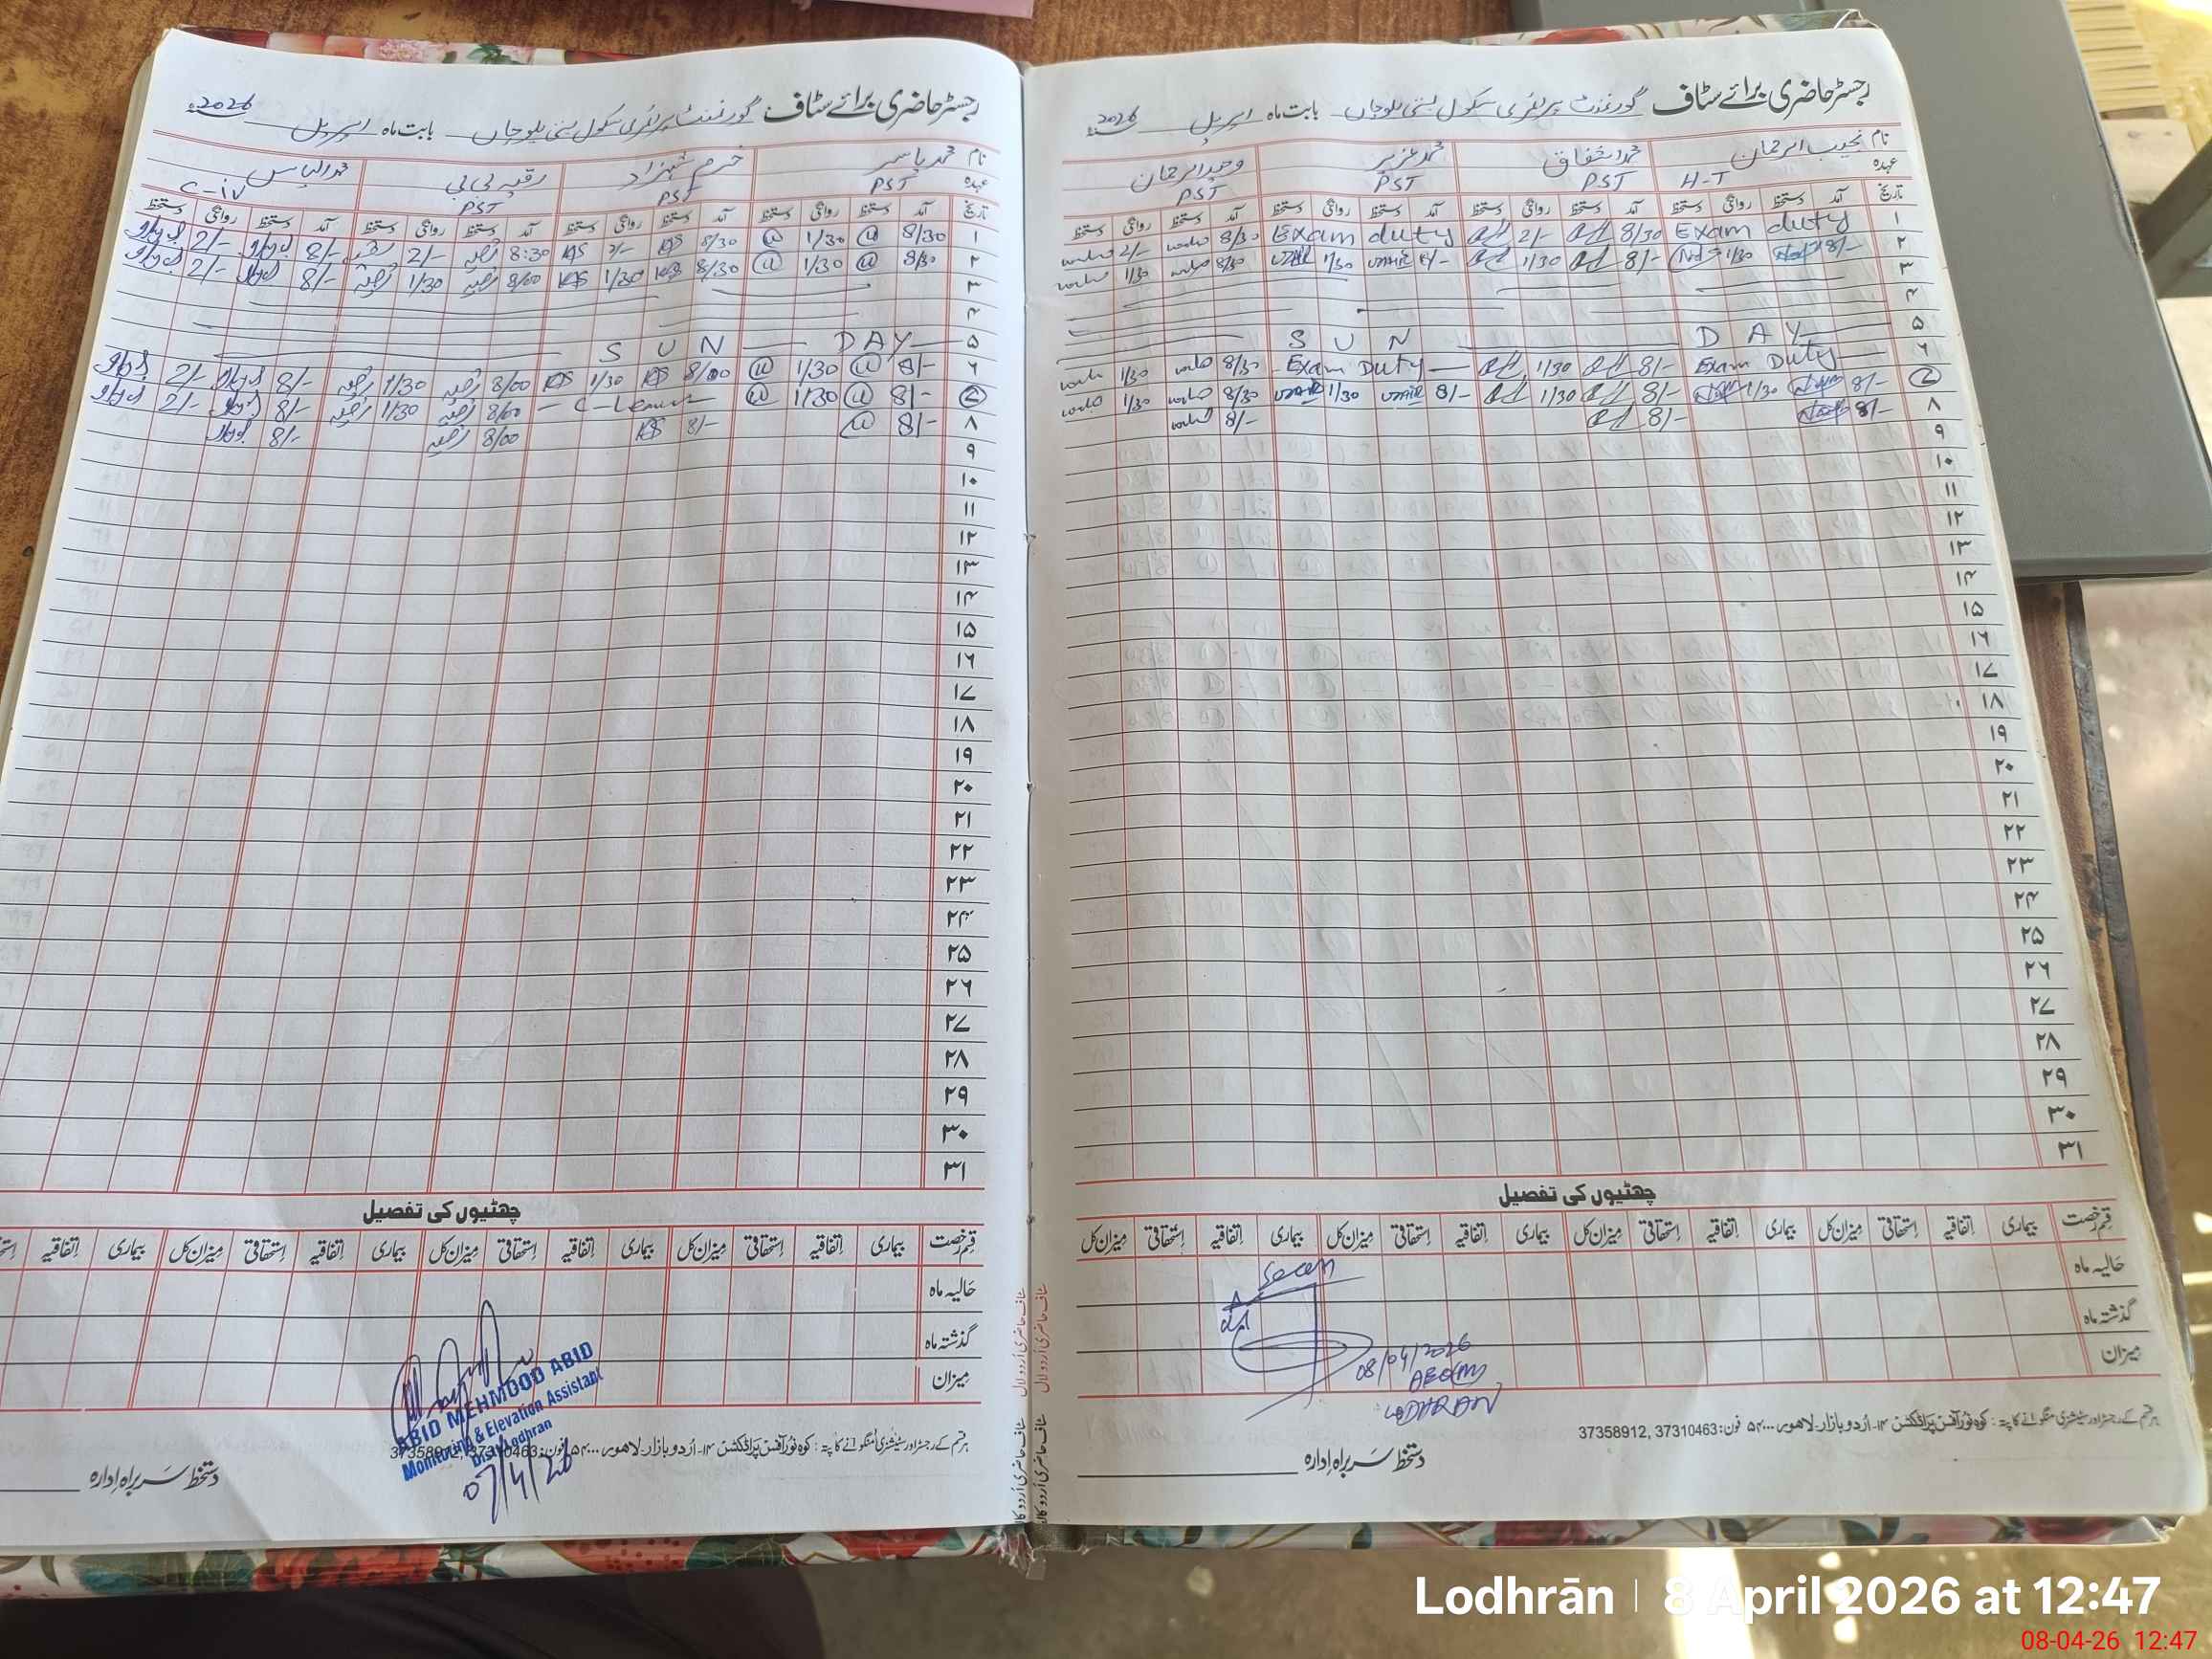 رجسٹر حاضری برائے سٹاف گورنمنٹ پرائمری سکول بستی بلوچاں بابت ماہ اپریل 2026ء
نام نجیب الرحمان محمد اشفاق محمد عزیر وحید الرحمان
عہدہ H-T PST PST PST
تاریخ آمد دستخط روانگی دستخط آمد دستخط روانگی دستخط آمد دستخط روانگی دستخط آمد دستخط روانگی دستخط
۱ Exam duty 8/30 2/- Exam duty 8/30 2/-
۲ 8/- 1/30 8/- 1/30 8/- 1/30 8/30 1/30
۳
۴
۵ S U N D A Y
۶ Exam Duty 8/- 1/30 Exam Duty 8/30 1/30
۷ 8/- 1/30 8/- 1/30 8/- 1/30 8/30 1/30
۸ 8/- 8/- 8/-
۹
۱۰
۱۱
۱۲
۱۳
۱۴
۱۵
۱۶
۱۷
۱۸
۱۹
۲۰
۲۱
۲۲
۲۳
۲۴
۲۵
۲۶
۲۷
۲۸
۲۹
۳۰
۳۱
چھٹیوں کی تفصیل
قسم رخصت بیماری اتفاقیہ استحقاقی میزان کل بیماری اتفاقیہ استحقاقی میزان کل بیماری اتفاقیہ استحقاقی میزان کل بیماری اتفاقیہ استحقاقی میزان کل
حالیہ ماہ
گذشتہ ماہ
میزان
Seen
08/04/2026
AEO(M)
LODHRAN
ہر قسم کے رجسٹر اور سٹیشنری منگوانے کا پتہ: کوہ نور آفس پراڈکشن ۱۴-اُردو بازار-لاھور ۵۴۰۰۰ فون: 37310463, 37358912
دستخط سربراہ ادارہ
رجسٹر حاضری برائے سٹاف گورنمنٹ پرائمری سکول بستی بلوچاں بابت ماہ اپریل 2026ء
نام محمد یاسر خرم شہزاد رقیہ بی بی محمد الیاس
عہدہ PST PST PST C-iv
تاریخ آمد دستخط روانگی دستخط آمد دستخط روانگی دستخط آمد دستخط روانگی دستخط آمد دستخط روانگی دستخط
۱ 8/30 1/30 8/30 2/- 8:30 2/- 8/- 2/-
۲ 8/30 1/30 8/30 1/30 8/00 1/30 8/- 2/-
۳
۴
۵ S U N D A Y
۶ 8/- 1/30 8/00 1/30 8/00 1/30 8/- 2/-
۷ 8/- 1/30 C-Leave 8/00 1/30 8/- 2/-
۸ 8/- 8/- 8/00 8/-
۹
۱۰
۱۱
۱۲
۱۳
۱۴
۱۵
۱۶
۱۷
۱۸
۱۹
۲۰
۲۱
۲۲
۲۳
۲۴
۲۵
۲۶
۲۷
۲۸
۲۹
۳۰
۳۱
چھٹیوں کی تفصیل
قسم رخصت بیماری اتفاقیہ استحقاقی میزان کل بیماری اتفاقیہ استحقاقی میزان کل بیماری اتفاقیہ استحقاقی میزان کل بیماری اتفاقیہ
حالیہ ماہ
گذشتہ ماہ
میزان
ABID MEHMOOD ABID
Monitoring & Elevation Assistant
Distt Lodhran
07/4/26
ہر قسم کے رجسٹر اور سٹیشنری منگوانے کا پتہ: کوہ نور آفس پراڈکشن ۱۴-اُردو بازار-لاھور ۵۴۰۰۰ فون: 37310463, 37358912
دستخط سربراہ ادارہ
Lodhrān | 8 April 2026 at 12:47
08-04-26 12:47